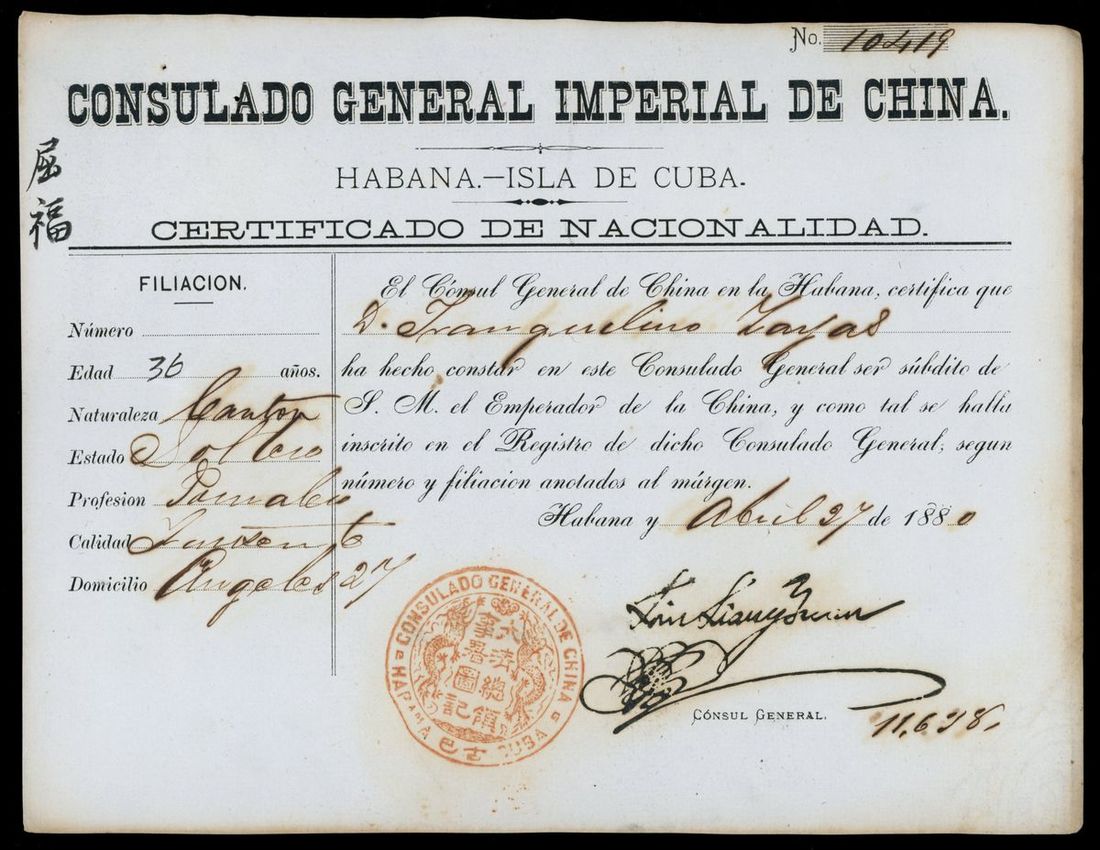 No. 10419
CONSULADO GENERAL IMPERIAL DE CHINA.
屈福
HABANA.—ISLA DE CUBA.
CERTIFICADO DE NACIONALIDAD.
FILIACION.
Número
Edad 36 años.
Naturaleza Canton
Estado Soltero
Profesion
Calidad
Domicilio Angeles 27
El Cónsul General de China en la Habana, certifica que
D. Tranquelino Zayas
ha hecho constar en este Consulado General ser súbdito de
S. M. el Emperador de la China, y como tal se halla
inscrito en el Registro de dicho Consulado General; segun
número y filiacion anotados al márgen.
Habana y Abril 27 de 1880
CONSULADO GENERAL DE CHINA
HABANA CUBA
大清總領
事署圖記
古巴
CÓNSUL GENERAL.
11,638,